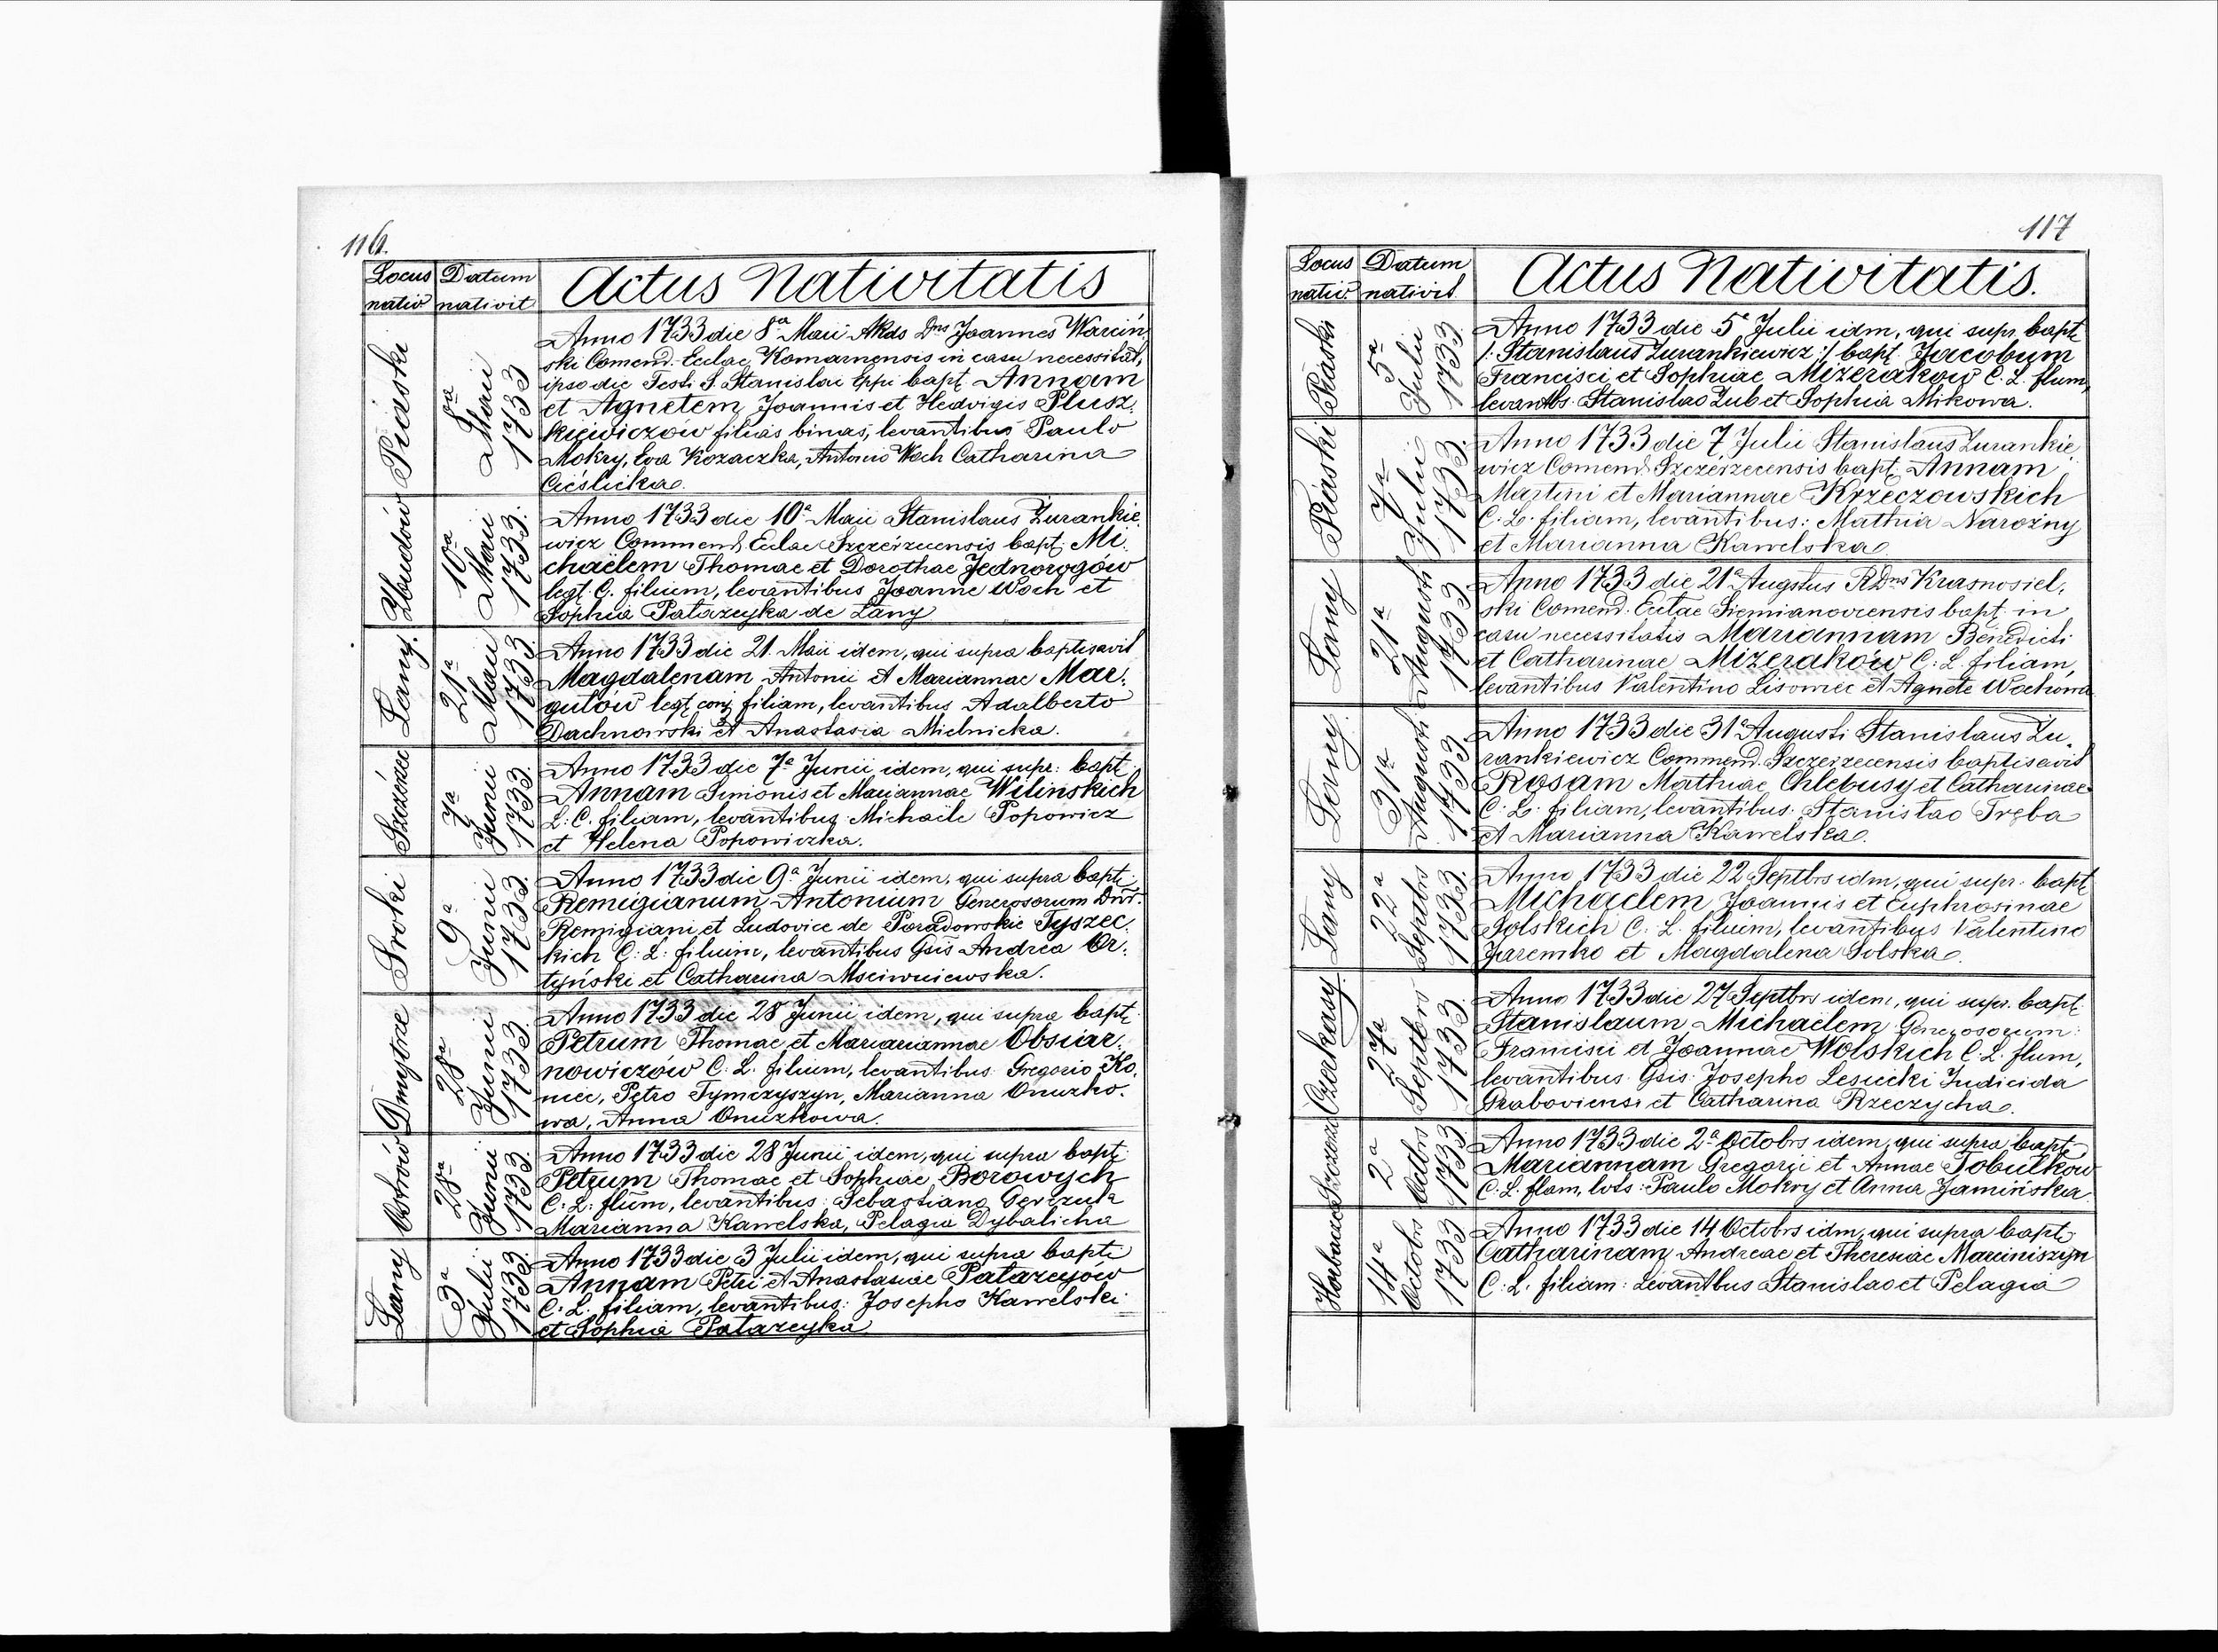 116.
Locus nativ
Datum nativit
Actus Nativitatis
Piaski
8ª Maii 1733
Anno 1733 die 8ª Maii ARds Dns Joannes Warciń,
ski Comend. Eclae Komarnensis in casu necessitat,
ipso die Festi S. Stanislai Eppi bapt. Annam
et Agnetem Joannis et Hedvigis Plusz,
kiewiczów filias binas, levantibus Paulo
Mokry, Eva Kozaczka, Antonio Woch Catharina
Cieślicka.
Zbudów
10ª Maii 1733.
Anno 1733 die 10ª Maii Stanislaus Żurankie,
wicz Commend. Eclae Szczérzecensis bapt. Mi,
chaëlem Thomae et Dorothae Jednorogów
legt. C. filium, levantibus Joanne Woch et
Sophia Patarzeyka de Łany
Łany.
21ª Maii 1733.
Anno 1733 die 21. Maii idem, qui supra baptisavit
Magdalenam Antonii et Mariannae Mar,
gulów legt conj filiam, levantibus Adalberto
Dachnowski et Anastasia Mielnicka.
Szczérzec
7ª Junii 1733.
Anno 1733 die 7ª Junii idem, qui supr: bapt
Annam Simonis et Mariannae Wilińskich
L. C. filiam, levantibus Michaële Popowicz
et Helena Popowiczka.
Sroki
9ª Junii 1733.
Anno 1733 die 9ª Junii idem, qui supra bapt:
Remigianum Antonium Generosorum Dnr.
Remigiani et Ludovice de Poradowskie Tyszec,
kich C: L: filium, levantibus Gsis Andrea Or,
tyński et Catharina Msciwniewska.
Dmytrze
28ª Junii 1733
Anno 1733 die 28 Junii idem, qui supra bapt
Petrum Thomae et Mariariannae Obsiar,
nowiczów C. L. filium, levantibus Gregorio Ko,
niec, Petro Tymczyszyn, Marianna Onuzko,
wa, Anna Onuzkowa.
Ostrów
28ª Junii 1733.
Anno 1733 die 28 Junii idem, qui supra bapt
Petrum Thomae et Sophiae Borowych
C: L: flum, levantibus: Sebastiano Gerczuk
Marianna Kawelska, Pelagia Dybalicha
Łany
3ª Julii 1733.
Anno 1733 die 3 Julii idem, qui supra bapt:
Annam Petri et Anastasiae Patarzyjów
C: L. filiam, levantibus: Josepho Kawelski
et Sophia Patarzeyka
117
Locus nativ:
Datum nativit
Actus Nativitatis.
Piaski
5ª Julii 1733.
Anno 1733 die 5ª Julii idm, qui supr. bapt
/: Stanislaus Żurankiewicz :/ bapt. Jacobum
Francisci et Sophiae Mizeraków C. L. flum,
levantbs Stanislao Zub et Sophia Mikowa.
Piaski
7ª Julii 1733.
Anno 1733 die 7 Julii Stanislaus Żurankie,
wicz Comend. Szczérzecensis bapt. Annam
Martini et Mariannae Krzeczowskich
C. L. filiam, levantibus: Mathia Narożny
et Marianna Kawelska.
Łany
21ª Augusti 1733.
Anno 1733 die 21ª Augstus R Dns Krasnosiel,
ski Comend. Eclae Siemianoviensis bapt. in
casu necessitatis Mariannam Benedicti
et Catharinae Mizeraków C: L. filiam,
levantibus Valentino Lisowiec et Agnete Wochowa
Łany.
31ª Augusti 1733.
Anno 1733 die 31ª Augusti Stanislaus Żu,
rankiewicz Commend. Szczerzecensis baptisavit
Rosam Mathiae Chlebusy et Catharinae
C: L: filiam, levantibus: Stanislao Tręba
et Marianna Kawelska.
Łany
22ª Septbrs 1733.
Anno 1733 die 22 Septbrs idm, qui supr. bapt
Michaelem Joannis et Euphrosinae
Solskich C: L. filium, levantibus Valentino
Jaremko et Magdalena Solska.
Czerkasy.
27ª Septbrs 1733.
Anno 1733 die 27 Septbrs idem, qui supr. bapt.
Stanislaum Michaëlem Generosorum:
Francisci et Joannae Wolskich C. L. flum,
levantibus Gsis Josepho Lesiecki Iudicida
Graboviensi et Catharina Rzeczycha.
2ª Octbrs 1733.
Anno 1733 die 2ª Octobrs idem, qui supra bapt.
Mariannam Gregorji et Annae Tobiłków
C. L. flam, lvts: Paulo Mokry et Anna Jamińska.
Horbacze
14ª Octobrs 1733
Anno 1733 die 14 Octobrs idm, qui supra bapt.
Catharinam Andreae et Theresiae Marciniszyn
C. L. filiam: Levantbus Stanislao et Pelagia